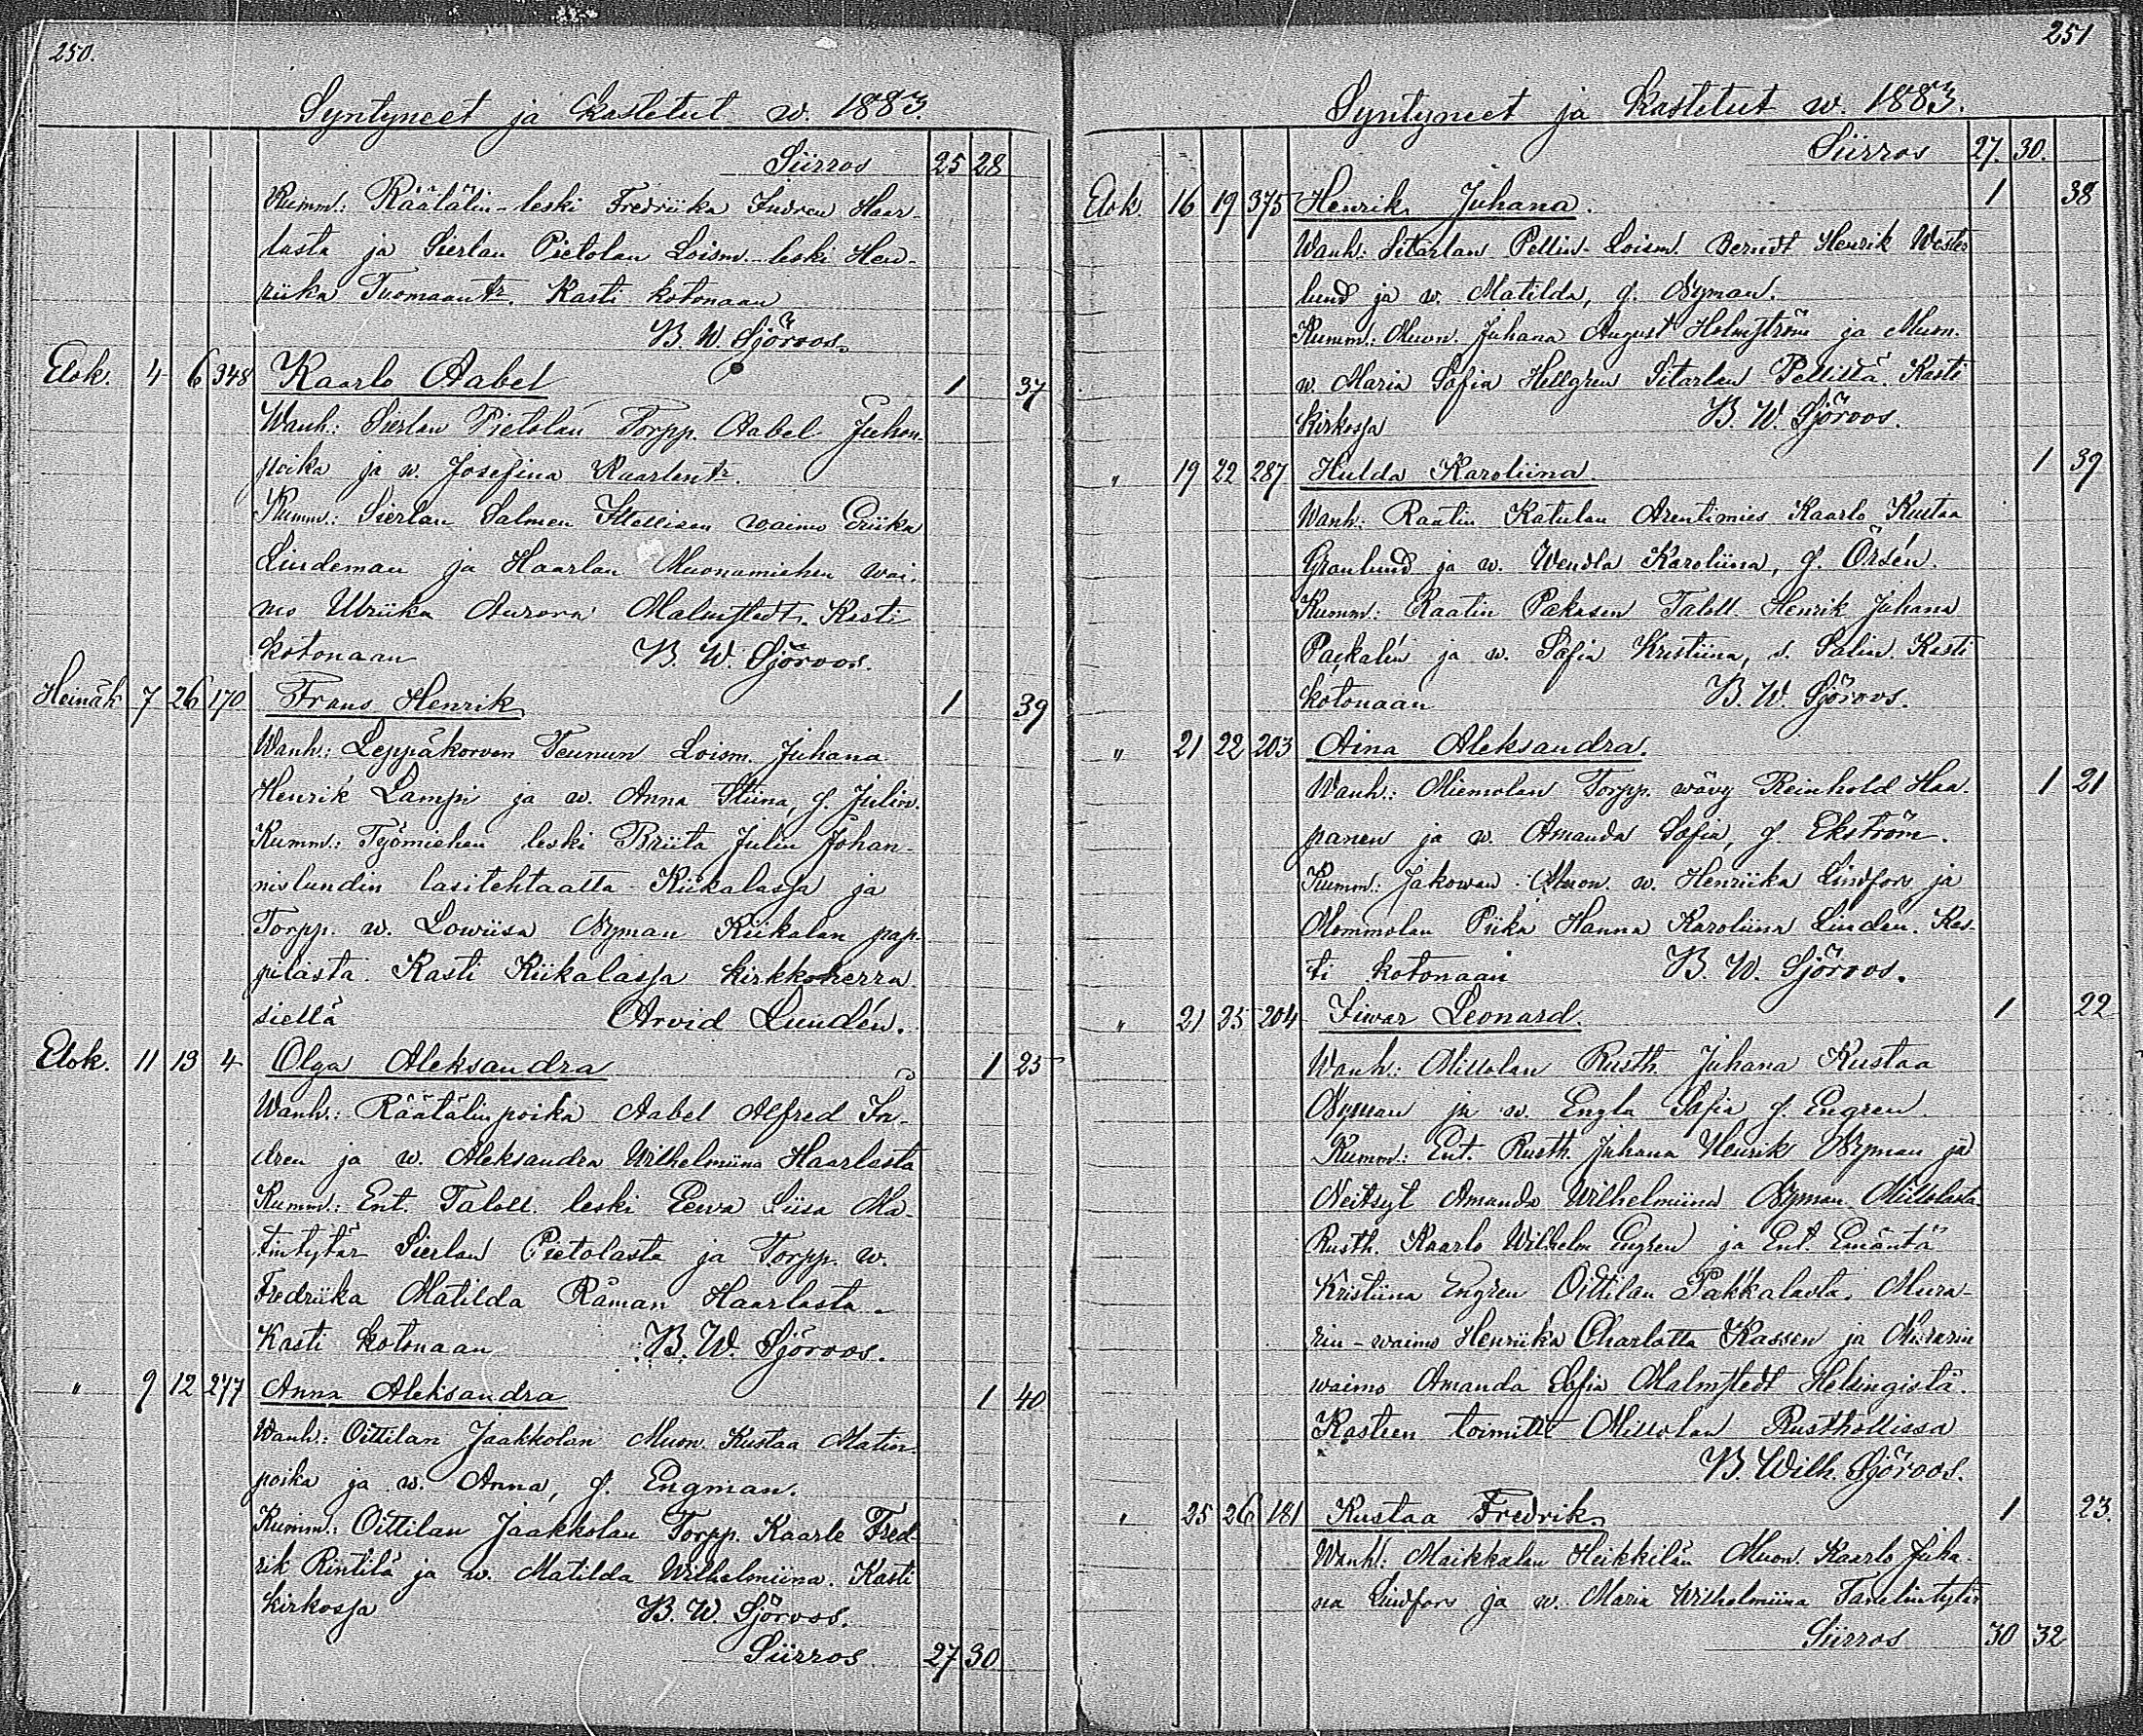 250.
Syntyneet ja kastetut w. 1883.
Siirros 25 28
Kumm.: Räätälin-leski Fredriika Indren Haar-
lasta ja Sierlan Pietolan Loism.-leski Hen-
riika Tuomaantr. Kasti kotonaan
B. W. Sjöroos.
Elok. 4 6 348 Kaarlo Aabel 1 37
Wanh.: Sierlan Pietolan Torpp. Aabel Juhon-
poika ja w. Josefina Kaarlentr.
Kumm.: Sierlan Salmen Itsellisen waimo Eriika
Lindeman ja Haarlan Muonamiehen wai-
mo Ulriika Aurora Malmstedt. Kasti
kotonaan B. W. Sjöroos.
Heinäk 7 26 170 Frans Henrik 1 39
Wanh.: Leppäkorven Teunun Loism. Juhana
Henrik Lampi ja w. Anna Stiina, f. Julin.
Kumm.: Työmiehen leski Briita Julin Johan-
nislundin lasitehtaalta Kiikalassa ja
Torpp. w. Lowiisa Nyman Kiikalan pap-
pilasta. Kasti Kiikalassa kirkkoherra
siellä Arvid Lundén.
Elok. 11 13 4 Olga Aleksandra 1 25
Wanh.: Räätälinpoika Aabel Alfred In-
dren ja w. Aleksandra Wilhelmiina Haarlasta
Kumm.: Ent. Taloll. leski Eewa Liisa Ma-
tintytär Sierlan Pietolasta ja Torpp. w.
Fredriika Matilda Råman Haarlasta.
Kasti kotonaan B. W. Sjöroos.
" 9 12 277 Anna Aleksandra 1 40
Wanh.: Oittilan Jaakkolan Muon. Kustaa Matin-
poika ja w. Anna, f. Engman.
Kumm.: Oittilan Jaakkolan Torpp. Kaarle Fred-
rik Rintilä ja w. Matilda Wilhelmiina. Kasti
kirkossa B. W. Sjöroos.
Siirros 27 30
251
Syntyneet ja Kastetut w. 1883.
Siirros 27. 30.
Elok. 16 19 375 Henrik Juhana. 1 38
Wanh.: Sitarlan Pellin Loism. Berndt Henrik Wester
lund ja w. Matilda, f. Nyman.
Kumm.: Muon. Juhana August Holmström ja Muon.
w. Maria Sofia Hellgren Sitarlan Pelliltä. Kasti
kirkossa B. W. Sjöroos.
" 19 22 287 Hulda Karoliina 1 39
Wanh.: Raatin Katulan Arentimies Kaarlo Kustaa
Granlund ja w. Wendla Karoliina, f. Örsén.
Kumm.: Raatin Taloll. Henrik Juhana
Packalén ja w. Sofia Kristiina, s. Salin. Kasti
kotonaan B. W. Sjöroos.
" 21 22 203 Aina Aleksandra.
Wanh.: Miemolan Torpp. wävy Reinhold Haa- 1 21
panen ja w. Amanda Sofia, f. Ekström.
Kumm.: Jakowan Muon. w. Henriika Lindfors ja
Mommolan Piika Hanna Karoliina Linden. Kas-
ti kotonaan B. W. Sjöroos.
" 21 25 204 Iiwar Leonard. 1 22
Wanh.: Missolan Rusth. Juhana Kustaa
Nyman ja w. Engla Sofia f. Engren.
Kumm.: Ent. Rusth. Juhana Henrik Nyman ja
Neitsyt Amanda Wilhelmiina Nyman Missolasta
Rusth. Kaarlo Wilhelm Engren ja Ent. Emäntä
Kristiina Engren Oittilan Pakkalasta, Mura-
rin-waimo Henriika Charlotta Kassen ja Murarin
waimo Amanda Sofia Malmstedt Helsingistä.
Kasteen toimitti Missolan Rusthollissa
B. Wilh. Sjöroos.
" 25 26 181 Kustaa Fredrik. 1 23.
Wanh.: Maikkalan Heikkilän Muon. Kaarlo Juha-
na Lindfors ja w. Maria Wilhelmiina Tanelintytär
Siirros 30 32